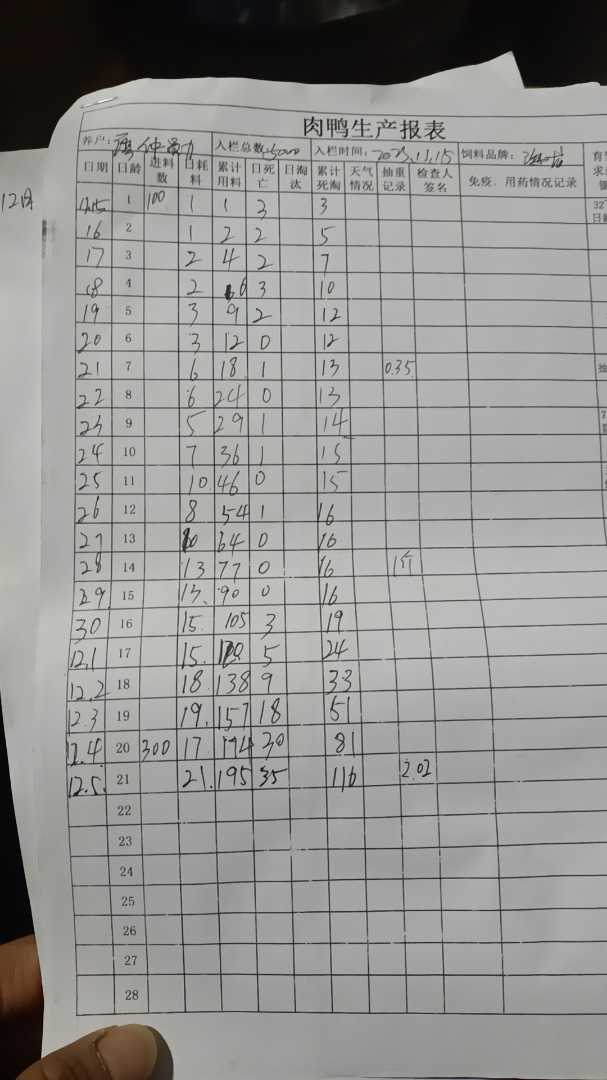 肉鸭生产报表
养户: 入栏总数:5000 入栏时间: 2025.11.15 饲料品牌:
日期 日龄 进料数 日耗料 累计用料 日死亡 日淘汰 累计死淘 天气情况 抽重记录 检查人签名 免疫、用药情况记录
12月
11.15 1 100 1 1 3 3 32
16 2 1 2 2 5 日
17 3 2 4 2 7
18 4 2 6 3 10
19 5 3 9 2 12
20 6 3 12 0 12
21 7 6 18 1 13 0.35
22 8 6 24 0 13
23 9 5 29 1 14
24 10 7 36 1 15
25 11 10 46 0 15
26 12 8 54 1 16
27 13 10 64 0 16
28 14 13 77 0 16 1斤
29 15 13 90 0 16
30 16 15 105 3 19
12.1 17 15 120 5 24
12.2 18 18 138 9 33
12.3 19 19 157 18 51
12.4 20 300 17 174 30 81
12.5 21 21 195 35 116 2.02
22
23
24
25
26
27
28